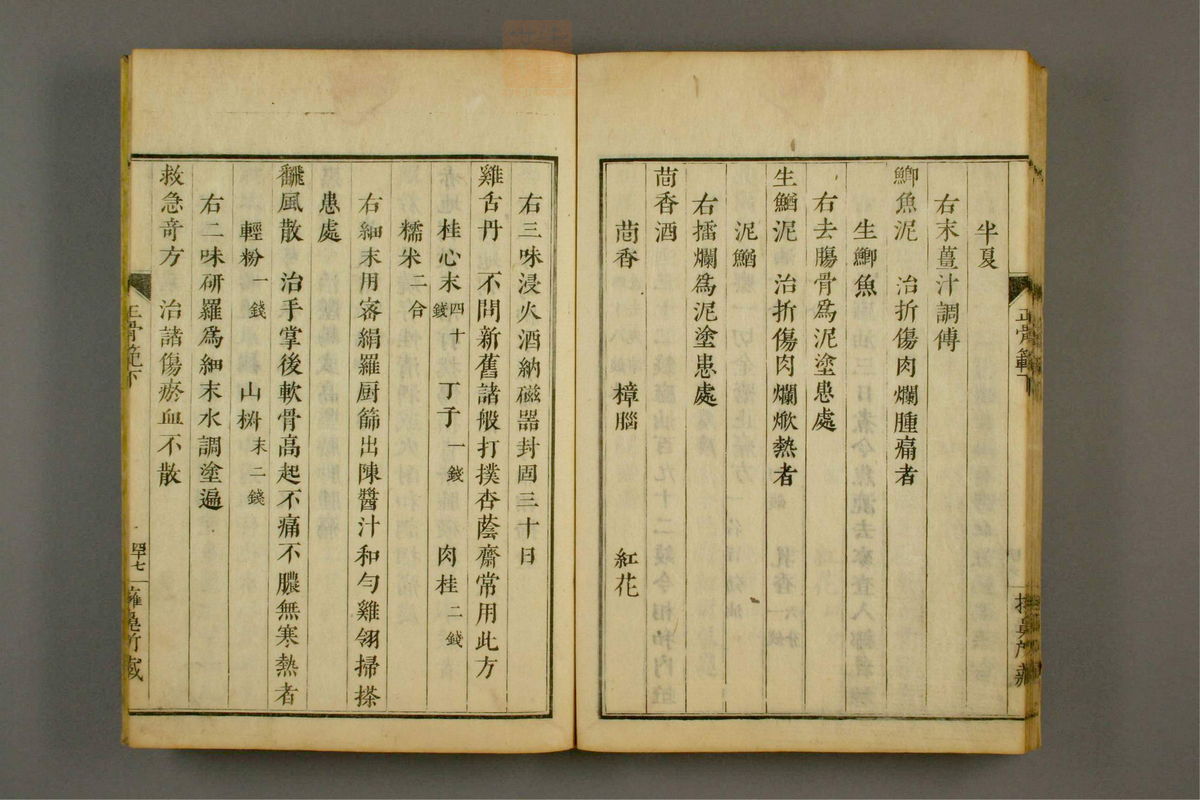 半夏
右末薑汁調傅
鯽魚泥　治折傷肉爛腫痛者
生鯽魚
右去腸骨為泥塗患處
生鰌泥　治折傷肉爛焮熱者
泥鰌
右擂爛為泥塗患處
茴香酒
茴香　樟腦　紅花
右三味浸火酒納磁器封固三十日
雞舌丹　不問新舊諸般打撲杏蔭齋常用此方
桂心末四十錢　丁子一錢　肉桂二錢
糯米二合
右細末用密絹羅厨篩出陳醬汁和勻雞翎掃搽
患處
飜風散　治手掌後軟骨高起不痛不膿無寒熱者
輕粉一錢　山梔末二錢
右二味研羅為細末水調塗遍
救急奇方　治諸傷瘀血不散
正骨範下
四十七